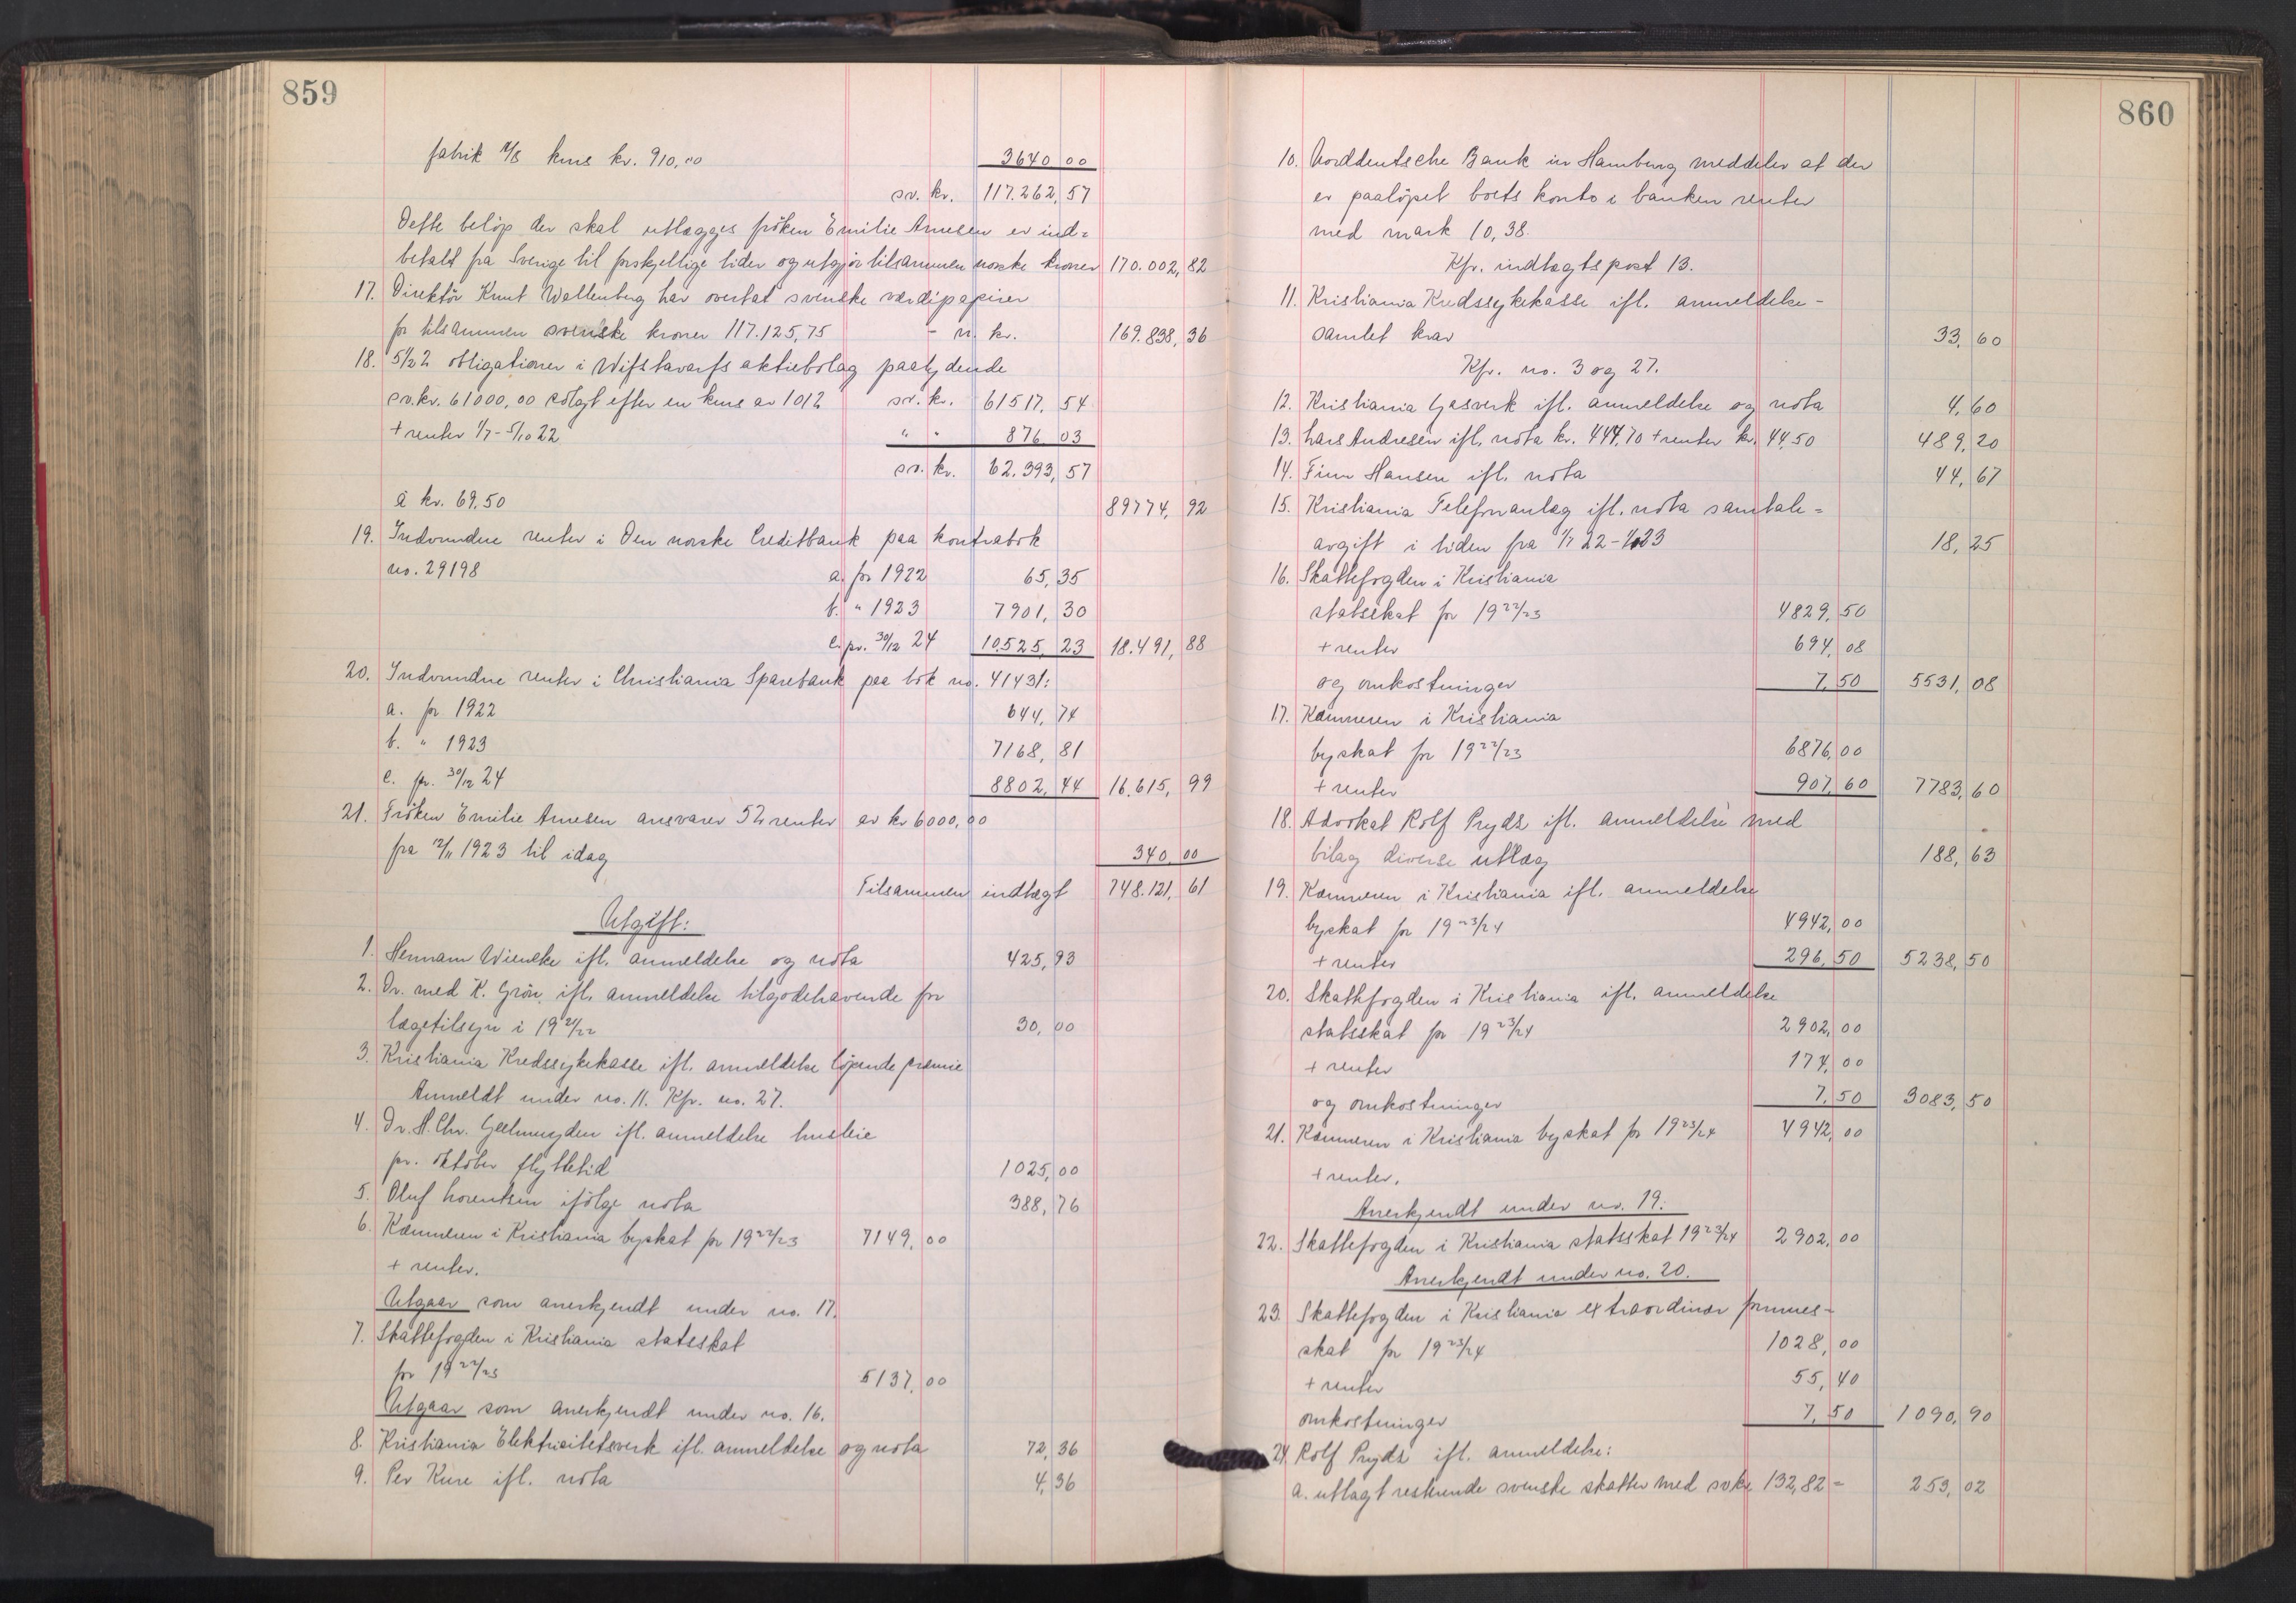 859
fabrik A/S kurs kr. 910,00 3640 00
sv. kr. 117.262,57
Dette beløp der skal utlægges frøken Emilie Arnesen er ind-
betalt fra Sverige til forskjellige tider og utgjør tilsammen norske kroner 170.002,82
17. Direktør Knut Wallenberg har overtat svenske værdipapirer
for tilsammen svenske kroner 117.125,75 - n. kr. 169.838,36
18. 5½% obligationer i Wifstavarfs aktiebolag paalydende
sv.kr. 61000,00 solgt efter en kurs av 101% sv. kr. 61517,54
+ renter 1/7 - 5/10 22 " " 876 03
sv. kr. 62.393,57
à kr. 69,50 89774,92
19. Indvundne renter i Den norske Creditbank paa kontrabok
no. 29198 a. for 1922 65,35
b. " 1923 7901,30
c. pr. 30/12 24 10525,23 18.491,88
20. Indvundne renter i Christiania Sparebank paa bok no. 41431:
a. for 1922 644,74
b. " 1923 7168,81
c. pr. 30/12 24 8802,44 16.615,99
21. Frøken Emilie Arnesen ansvarer 5% renter av kr 6000,00
fra 12/11 1923 til idag 340,00
Tilsammen indtægt 748.121,61
Utgift:
1. Hermann Wiencke ifl. anmeldelse og nota 425,93
2. Dr. med K. Grøn, ifl. anmeldelse tilgodehavende for
lægetilsyn i 19 21/22 30,00
3. Kristiania Kredssykekasse ifl. anmeldelse løpende præmie
Anmeldt under no. 11. Kfr. no. 27.
4. Dr. H. Chr. Geelmuyden ifl. anmeldelse husleie
pr. oktober flyttetid 1025,00
5. Oluf Lorentsen ifølge nota 388,76
6. Kæmneren i Kristiania byskat for 19 22/23 7149,00
+ renter.
Utgaar som anerkjendt under no. 17.
7. Skattefogden i Kristiania statsskat
for 19 22/23 5137,00
Utgaar som anerkjendt under no. 16.
8. Kristiania Elektricitetsverk ifl. anmeldelse og nota 72,36
9. Per Kure ifl. nota 4,36
860
10. Norddeutsche Bank in Hamburg meddeler at der
er paaløpet boets konto i banken renter
med mark 10,38.
Kfr. indtægtspost 13.
11. Kristiania Kredssykekasse ifl. anmeldelse -
samlet krav 33,60
Kfr. no. 3 og 27.
12. Kristiania Gasverk ifl. anmeldelse og nota 4,60
13. Lars Andresen ifl. nota kr. 444,70 + renter kr. 44,50 489,20
14. Finn Hansen ifl. nota 44,67
15. Kristiania Telefonanlæg ifl. nota samtale-
avgift i tiden fra 1/7 22 - 1/1 23 18,25
16. Skattefogden i Kristiania
statsskat for 19 22/23 4829,50
+ renter 694,08
og omkostninger 7,50 5531,08
17. Kæmneren i Kristiania
byskat for 19 22/23 6876,00
+ renter 907,60 7783,60
18. Advokat Rolf Prydz ifl. anmeldelse med
bilag diverse utlæg 188,63
19. Kæmneren i Kristiania ifl. anmeldelse
byskat for 19 23/24 4942,00
+ renter 296,50 5238,50
20. Skattefogden i Kristiania ifl. anmeldelse
statsskat for 19 23/24 2902,00
+ renter 174,00
og omkostninger 7,50 3083,50
21. Kæmneren i Kristiania byskat for 19 23/24 4942,00
+ renter.
Anerkjendt under no. 19.
22. Skattefogden i Kristiania statsskat 19 23/24 2902,00
Anerkjendt under no. 20.
23. Skattefogden i Kristiania extraordinær formues-
skat for 19 23/24 1028,00
+ renter 55,40
omkostninger 7,50 1090,90
24. Rolf Prydz ifl. anmeldelse:
a. utlagt resterende svenske skatter med svkr 132,82 = 253,02